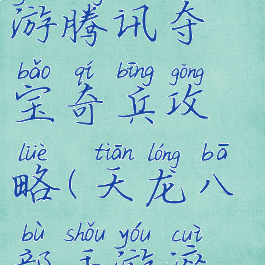 游腾讯夺
bǎo qí bīng gōng
宝奇兵攻
lüè tiān lóng bā
略(天龙八
bù shǒu yóu cuī
部手游